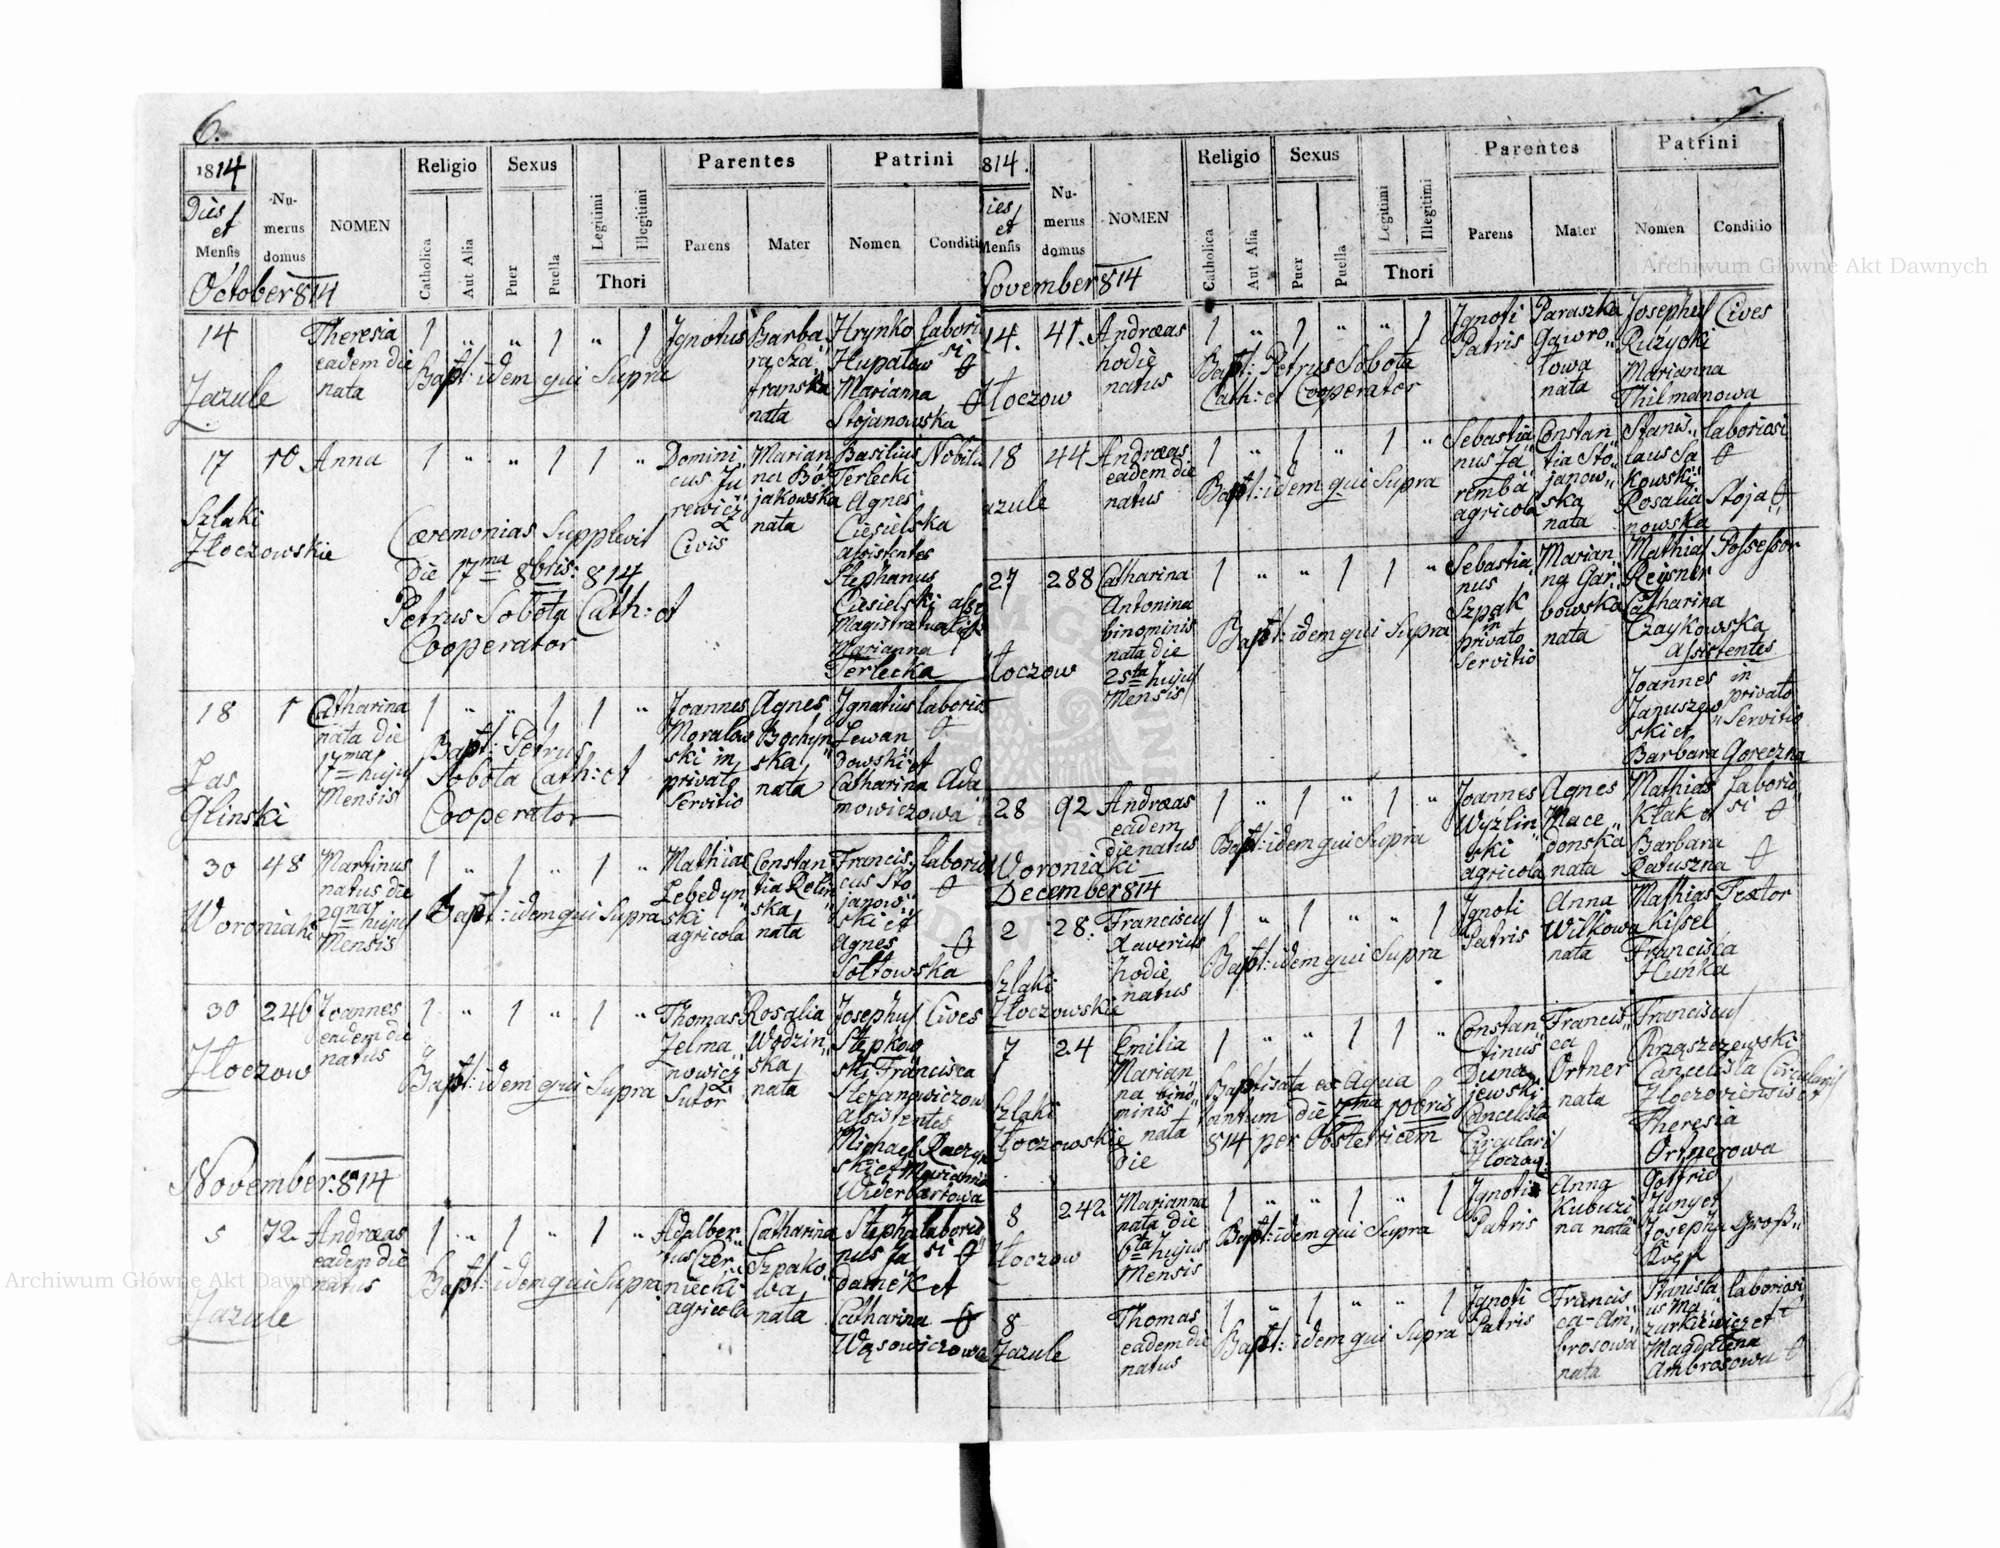 6.
1814
Dies et Mensis
Numerus domus
NOMEN
Religio
Catholica
Aut Alia
Sexus
Puer
Puella
Legitimi
Illegitimi
Thori
Parentes
Parens
Mater
Patrini
Nomen
Conditi
October 814
14
Zazule
Theresia
eadem die
nata
1 " " 1 " 1
Bapt: idem qui Supra
Ignotus
Barba
ra Sza"
franska
nata
Hrynko
Hupałow
Marianna
Stojanowska
labori
si
17
Szlaki
Złoczowskie
10
Anna
1 " " 1 1 "
Cæremonias Supplevit
Die 17ma 8bris: 814
Petrus Sobota Cath: et
Cooperator
Domini"
cus Ju"
rewicz
Civis
Marian
na Bo"
jakowska
nata
Basilius
Terlecki
Agnes
Ciesielska
assistentes
Stephanus
Ciesielski
Marianna
Terlecka
Nobiles
18
Las
Glinski
1
Catharina
nata die
17ma hujus
Mensis
1 " " 1 1 "
Bapt: Petrus
Sobota Cath: et
Cooperator
Joannes
Moralow
ski in
privato
Servitio
Agnes
Bochyn"
ska
nata
Ignatius
Lewan"
dowski et
Catharina Ada
mowiczowa
laborio
30
Woroniaki
48
Martinus
natus die
29na hujus
Mensis
1 " 1 " 1 "
Bapt: idem qui Supra
Mathias
Lebedyn"
ski
agricola
Constan
tia Rolin
ska
nata
Francis"
cus Sto"
janow"
ski et
Agnes
Sołtowska
laborio
30
Złoczow
246
Joannes
eadem die
natus
1 " 1 " 1 "
Bapt: idem qui Supra
Thomas
Zelma"
nowicz
Sutor
Rosalia
Wodzin"
ska
nata
Josephus
Stepkow
ski Francisca
Stefanowiczow
assistentes
Michael Raczyn
ski et Marianna
Widerbartowa
Cives
November: 814
5
Zazule
72
Andræas
eadem die
natus
1 " 1 " 1 "
Bapt: idem qui Supra
Adalber"
tus Czer"
niecki
agricola
Catharina
Szpako"
wa
nata
Stepha
nus Ja"
damek et
Catharina
Wąsowiczowa
laborio
si
7.
814.
ies et Mensis
Numerus domus
NOMEN
Religio
Catholica
Aut Alia
Sexus
Puer
Puella
Legitimi
Illegitimi
Thori
Parentes
Parens
Mater
Patrini
Nomen
Conditio
November 814
14.
Złoczow
41.
Andræas
hodie
natus
1 " 1 " " 1
Bapt: Petrus Sobota
Cath: et Cooperator
Ignoti
Patris
Paraszka
Gawro"
łowa
nata
Josephus
Różycki
Marianna
Thilmanowa
Cives
18
azule
44
Andræas
eadem die
natus
1 " 1 " 1 "
Bapt: idem qui Supra
Sebastia
nus Za"
remba
agricola
Constan
tia Sto"
janow"
ska
nata
Stanis"
laus Sa"
kowski
Rosalia Stoja"
nowska
laboriosi
27
łoczow
288
Catharina
Antonina
binominis
nata die
25ta hujus
Mensis
1 " " 1 1 "
Bapt: idem qui Supra
Sebastia"
nus
Szpak
in
privato
Servitio
Marian"
na Gar"
bowska
nata
Mathias
Reysner
Catharina
Czaykowska
Assistentes
Joannes
Januszew"
ski et
Barbara Goreczna
Possessor
in
privato
Servitio
28
Woroniaki
92
Andræas
eadem
die natus
1 " 1 " 1 "
Bapt: idem qui Supra
Joannes
Wyzlin"
ski
agricola
Agnes
Mace"
donska
nata
Mathias
Kłak et
Barbara
Ratuszna
laborio"
si
December 814
2
Szlaki
Złoczowskie
28.
Franciscus
Xaverius
hodie
natus
1 " 1 " " 1
Bapt: idem qui Supra
Ignoti
Patris
Anna
Wilkowa
nata
Mathias
Kissel
Francisca
Hunka
Textor
7
Szlaki
Złoczowskie
24
Emilia
Marian
na bino"
minis
nata
Die
1 " " 1 1 "
Baptisata ex Aqua
tantum die 7ma 10bris
814 per Obstetricem
Constan"
tinus
Duna"
jewski
Cancelista
Circularis
Złoczow:
Francis"
ca
Ortner
nata
Franciscus
Chrząszczewski
Cancelista Circularis
Złozoviensis et
Theresia
Ortnerowa
8
Złoczow
242
Marianna
nata die
6ta hujus
Mensis
1 " " 1 " 1
Bapt: idem qui Supra
Ignoti
Patris
Anna
Kubuzi
na nata
Gotfrid
Jung et
Josepha Groß"
8
Zazule
Thomas
eadem die
natus
1 " 1 " " 1
Bapt: idem qui Supra
Ignoti
Patris
Francis
ca Am"
brosowa
nata
Stanisla
us Ma"
zurkiewicz et
Magdalena
Ambrosowa
laboriosi
Archiwum Główne Akt Dawnych
Archiwum Główne Akt Dawnych